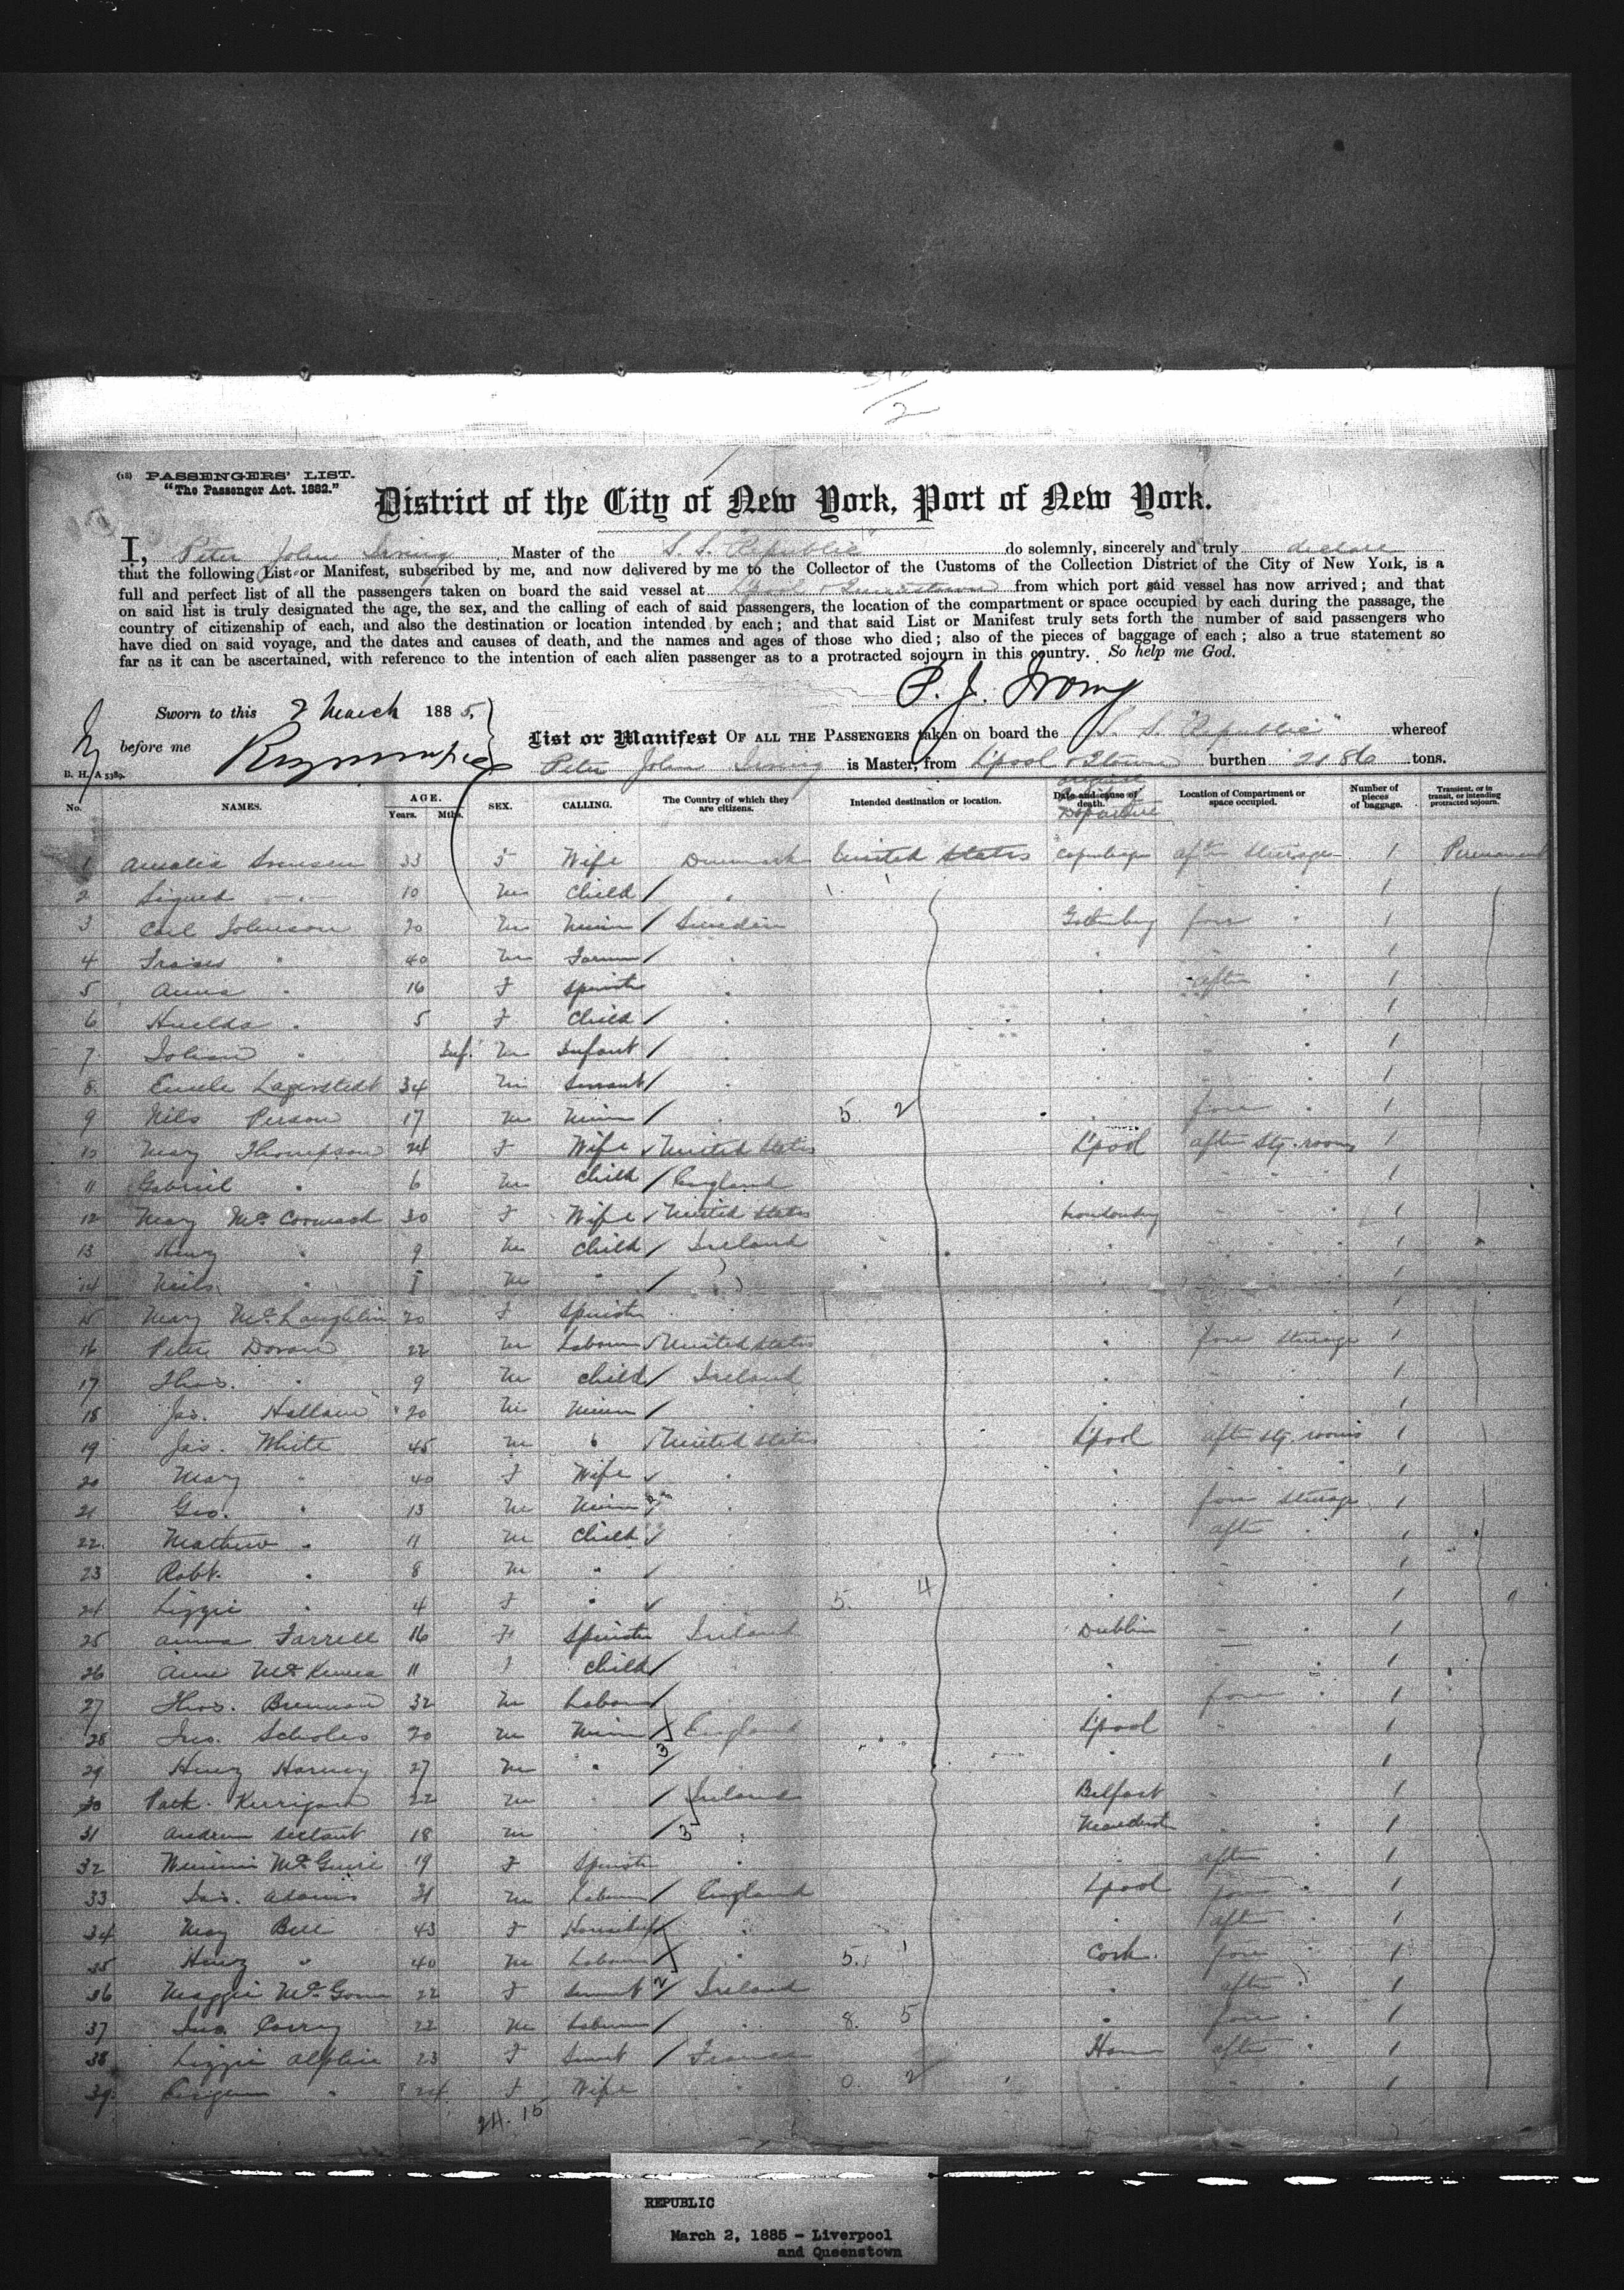 2
(18) PASSENGERS' LIST.
"The Passenger Act. 1882."
District of the City of New York, Port of New York.
I, Peter John Irving Master of the S. S. "Republic" do solemnly, sincerely and truly declare
that the following List or Manifest, subscribed by me, and now delivered by me to the Collector of the Customs of the Collection District of the City of New York, is a
full and perfect list of all the passengers taken on board the said vessel at L'pool & Queenstown from which port said vessel has now arrived; and that
on said list is truly designated the age, the sex, and the calling of each of said passengers, the location of the compartment or space occupied by each during the passage, the
country of citizenship of each, and also the destination or location intended by each; and that said List or Manifest truly sets forth the number of said passengers who
have died on said voyage, and the dates and causes of death, and the names and ages of those who died; also of the pieces of baggage of each; also a true statement so
far as it can be ascertained, with reference to the intention of each alien passenger as to a protracted sojourn in this country. So help me God.
P. J. Irving
Sworn to this 2 March 1885,
before me
List or Manifest OF ALL THE PASSENGERS taken on board the S. S. "Republic" whereof
Peter John Irving is Master, from L'pool & Qtown burthen 2186 tons.
B. H. A 5389.
No. NAMES. AGE. Years. Mths. SEX. CALLING. The Country of which they are citizens. Intended destination or location. Date and cause of death. Departure Location of Compartment or space occupied. Number of pieces of baggage. Transient, or in transit, or intending protracted sojourn.
1 Amalia Svensen 33 F Wife Denmark United States Copenhagen after steerage 1 Permanent
2 Sigued " 10 M Child / " 1
3 Carl Johnson 20 M / Sweden Gothenburg fore " 1
4 " 40 M / " 1
5 Anna " 16 F Spinster " after " 1
6 Huelda " 5 F Child / " 1
7 " Inf. M Infant / " 1
8 Lagerstedt 34 Servant / " 1
9 Nils Person 17 M / 5. 2 fore " 1
10 Mary Thompson 24 F Wife United States L'pool after stg. rooms 1
11 Gabriel " 6 M Child / England " 1
12 Mary McCormack 30 F Wife United States Londonderry " 1
13 Henry " 9 M Child / Ireland " 1
14 Neils " M " / 1
15 Mary McLaughlin 20 F Spinster " 1
16 Peter Doran 22 M Labourer United States fore steerage 1
17 Thos. " 9 M Child / Ireland " 1
18 Jas. 20 M / " 1
19 Jas. White 45 M " United States L'pool after stg. rooms 1
20 Mary " 40 F Wife " 1
21 Geo. " 13 M " fore steerage 1
22 Mathew " 11 M Child " after " 1
23 Robt. " 8 M " " 1
24 Lizzie " 4 F " 5. 4 " 1
25 Anna Farrell 16 F Spinster Ireland Dublin " 1
26 Ann McKenna 11 F Child / " 1
27 Thos. Brennan 32 M Labourer / " fore " 1
28 Jno. Scholes 20 M / England L'pool " 1
29 Henry Harvey 27 M " / 3 " 1
30 Patk. Kerrigan 22 M " / Ireland Belfast " 1
31 Andrew 18 M " / 3 " 1
32 McGuire 19 F Spinster " after " 1
33 Jas. Adams 31 M Labourer / England L'pool fore " 1
34 May Bell 43 F " after " 1
35 Henry " 40 M Labourer " 5. 1 Cork. fore " 1
36 Maggie McGowan 22 F Servant 2 / Ireland " after " 1
37 Jno. Corry 22 M Labourer / " 8. 5 " fore " 1
38 Lizzie 23 F Servant / France after " 1
39 " 24 F Wife " 0. 2 " 1
24. 15
REPUBLIC
March 2, 1885 - Liverpool
and Queenstown